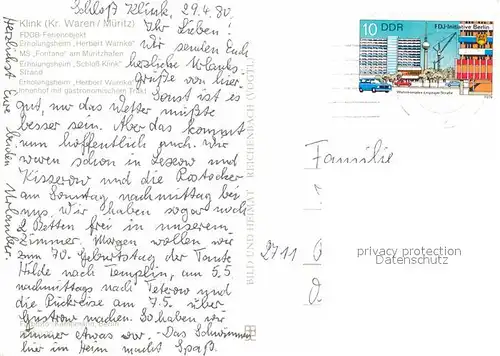 Schloß Klink, 29.4.80.
Klink (Kr. Waren / Müritz)
FDGB-Ferienobjekt
Erholungsheim „Herbert Warnke“
MS „Fontane“ am Müritzhafen
Erholungsheim „Schloß Klink“
Strand
Erholungsheim „Herbert Warnke“
Innenhof mit gastronomischen Trakt
Ihr Lieben!
Wir senden Euch
herzliche Urlaubs-
grüße von hier.
Sonst ist es
gut, nur das Wetter müßte
besser sein. Aber das kommt
nun hoffentlich auch. Wir
waren schon in
Kisserow und die Rostocker
am Sonntag nachmittag bei
uns. Wir haben sogar noch
2 Betten frei in unserem
Zimmer. Morgen wollen wir
zum 70. Geburtstag der Tante
Hilde nach Templin, am 5.5
nachmittags nach Teterow und
die Rückreise am 7.5. über
Güstrow machen. So haben wir
immer etwas vor. - Das Schwimmen
hier im Heim macht Spaß.
Herzlichst Eure beiden Urlauber.
BILD UND HEIMAT REICHENBACH (VOGTL)
10 DDR
FDJ-Initiative Berlin
Familie
2711
privacy protection
Datenschutz